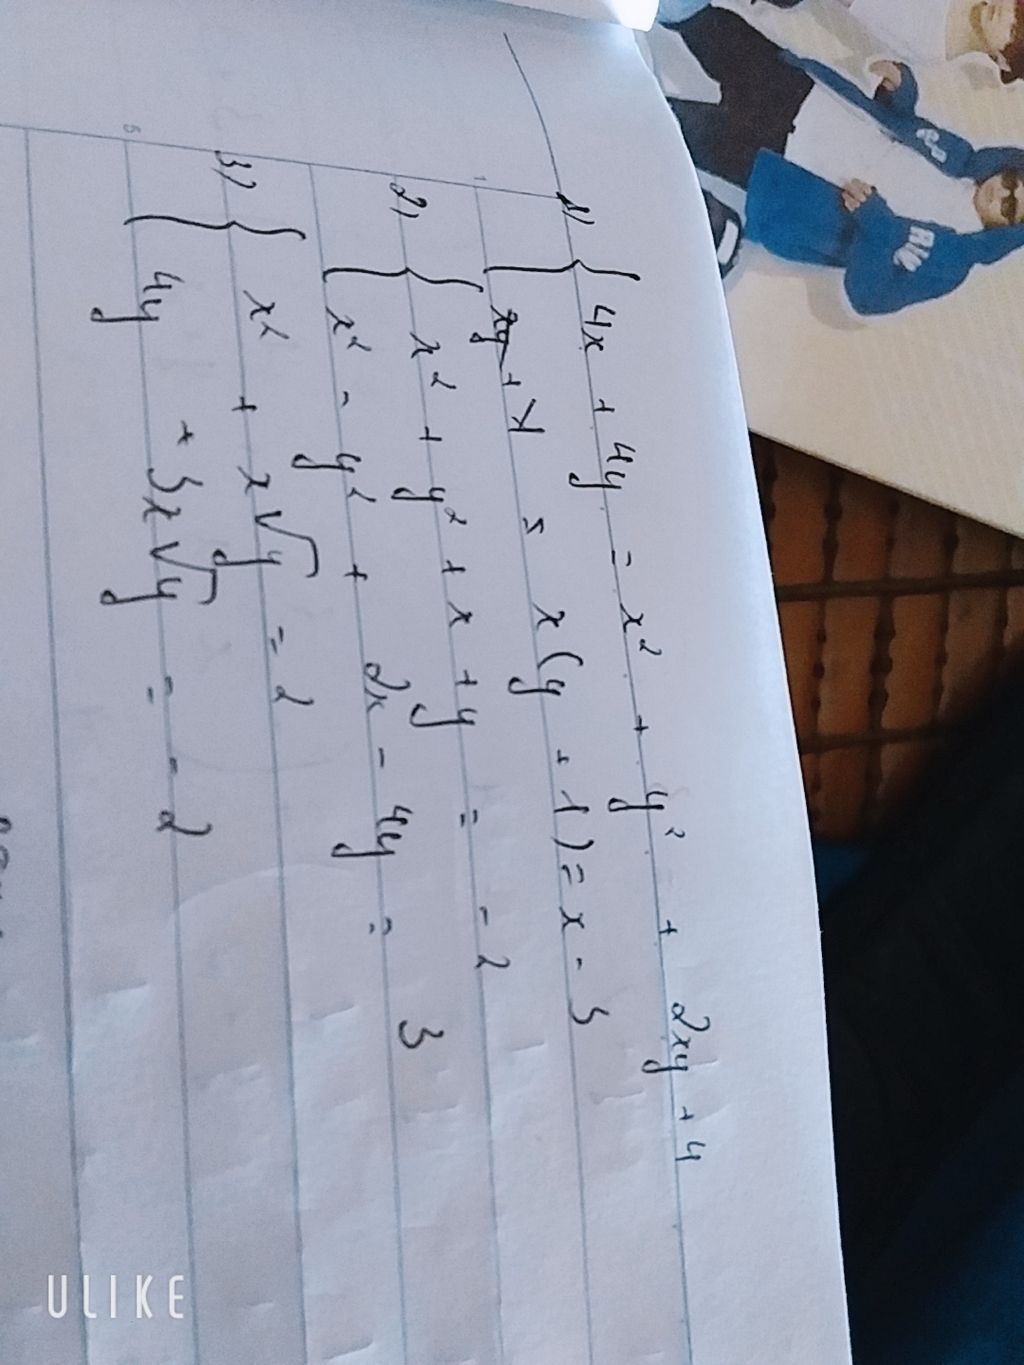 1) { 4x + 4y = x² + y² + 2xy + 4
x(y + 1) = x - 3
2) { x² + y² + x + y = -2
x² - y² + 2x - 4y = 3
3) { x² + x√y = 2
4y + 3x√y = -2
ULIKE